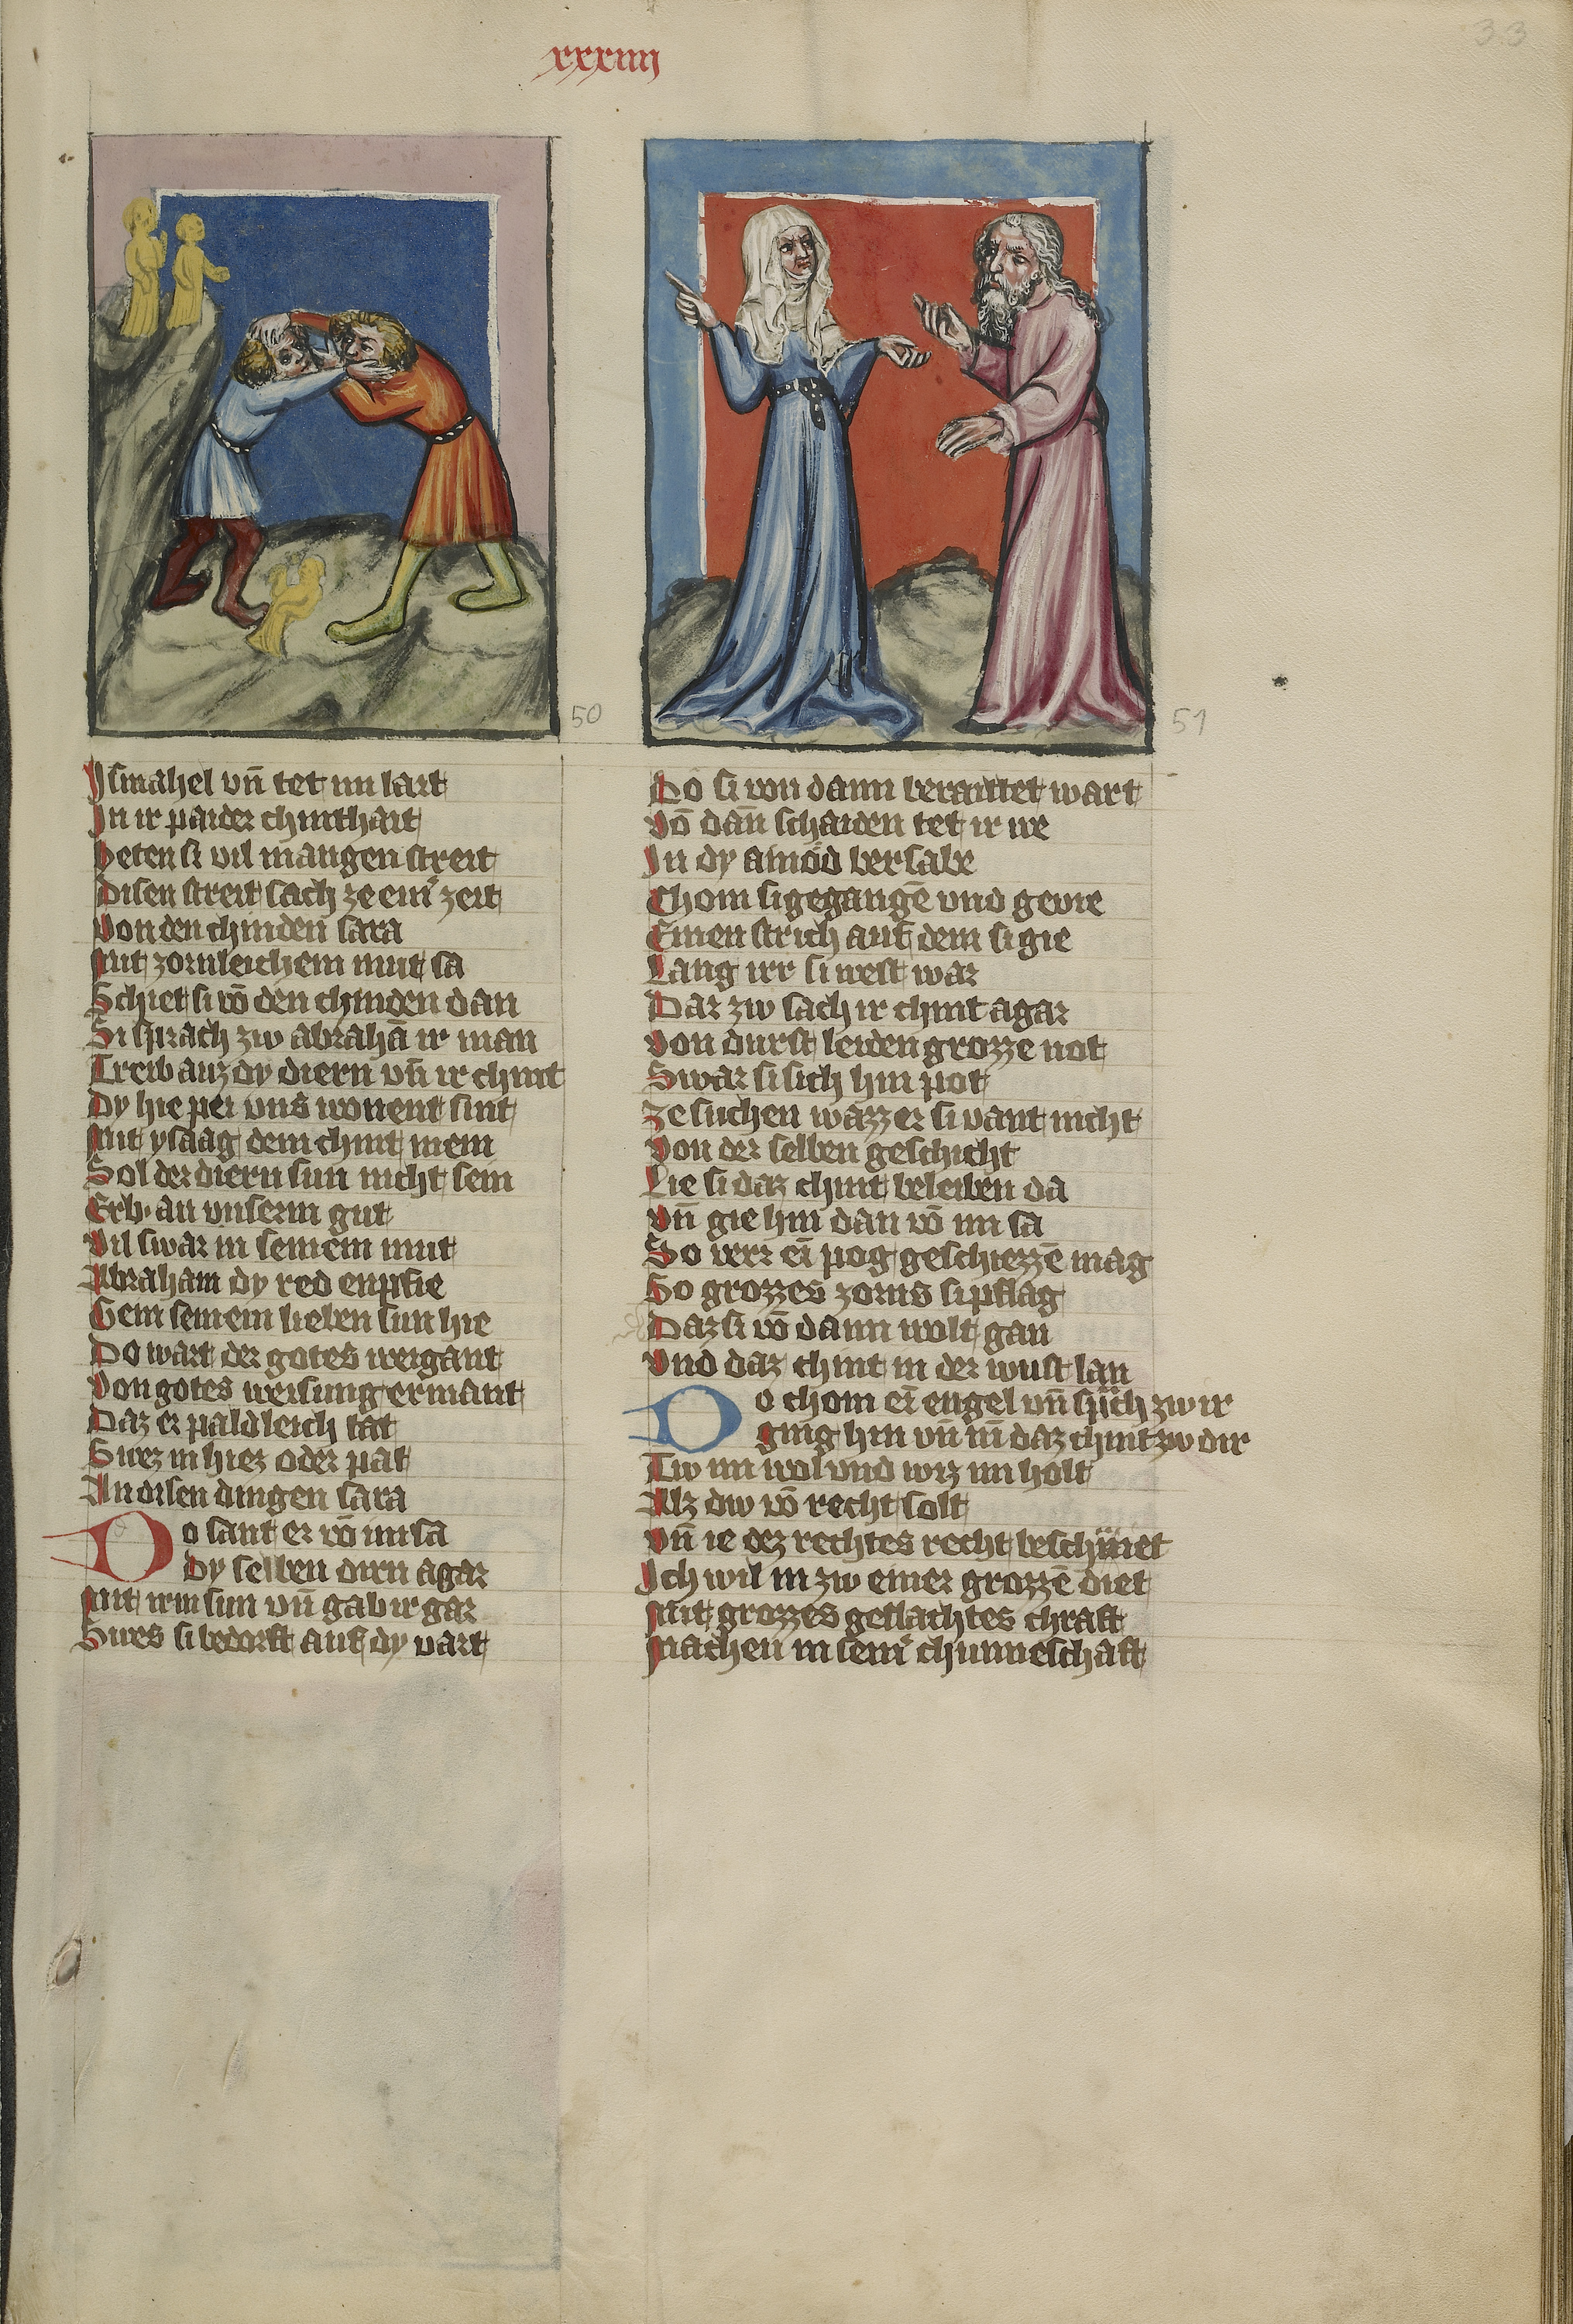 xxxiiij
33
50
51
Ismahel vñ tet im lait
In ir paider chinthait
Heten si vil mangen streit
Disen streit sach ze einˀ zeit
Von den chinden sara
Mit zornleichem mut sa
Schiet si võ den chinden dan
Si sprach zw abraha ir man
Treib auz dy diern vñ ir chint
Dy hie pei vns wonent sint
Mit ysaag dem chint mein
Sol der diern sun nicht sein
Erb an vnserm gut
Vil swar in seinem mut
Abraham dy red enpfie
Gem seinem lieben sun hie
Do wart der gotes weigant
Von gotes weisung ermant
Daz er paldleich tat
Swez in hiez oder pat
An disen dingen sara
Do sant er võ im sa
Dy selben dirn agar
Mit irm sun vñ gab ir gar
Swes si bedorft auf dy vart
Do si von dann beraittet wart
Võ dañ schaiden tet ir we
In dy ainöd bersabe
Chom si gegangē vnd gevie
Einen strich auf dem si gie
Lang irr si west war
Dar zw sach ir chint agar
Von durst leiden grozze not
Swar si sich hin pot
Ze suchen wazzer si vant nicht
Von der selben geschicht
Lie si daz chint beleiben da
Vñ gie hin dan võ im sa
So verr eī pog geschiezzē mag
So grozzes zorns si pflag
Daz si võ dann wolt gan
Vnd daz chint in der wust lan
Do chom eī engel vñ spͣch zw ir
ging hin vñ nī daz chint zw dir
Tw im wol vnd wiz im holt
Alz dw võ recht solt
Vñ ie dez rechtes recht beschiet
Ich wil in zw einer grozzē diet
Mit grozzes geslachtes chraft
Machen in seinˀ chunneschaft